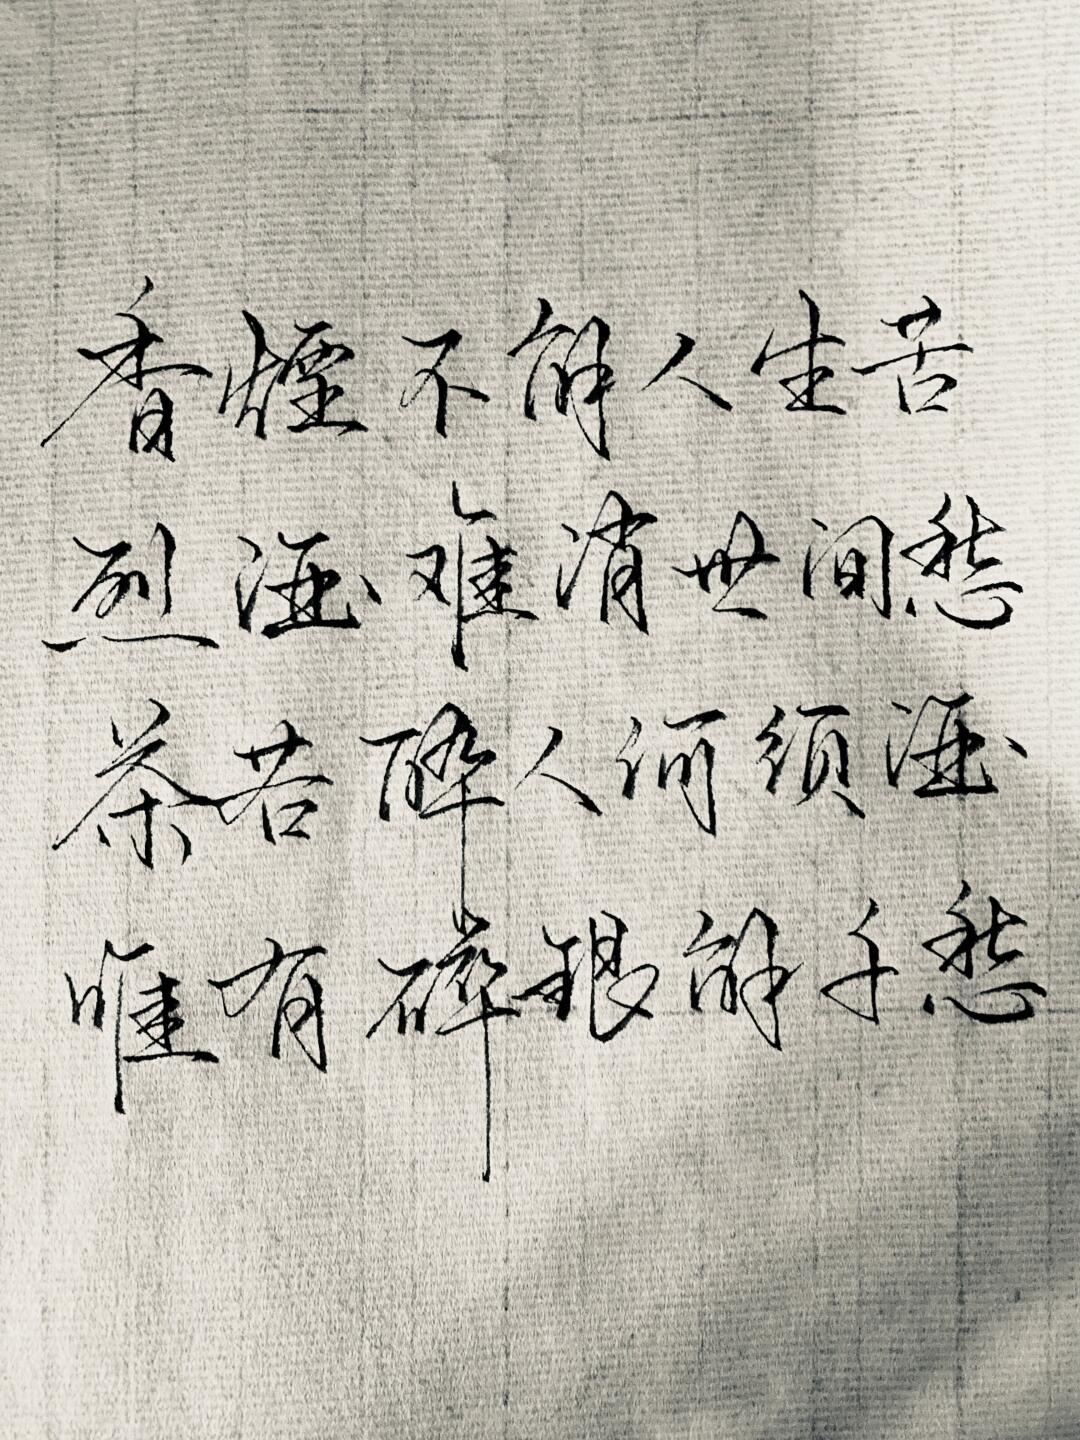 香煙不解人生苦
烈酒难消世间愁
茶若醉人何须酒
唯有碎银解千愁